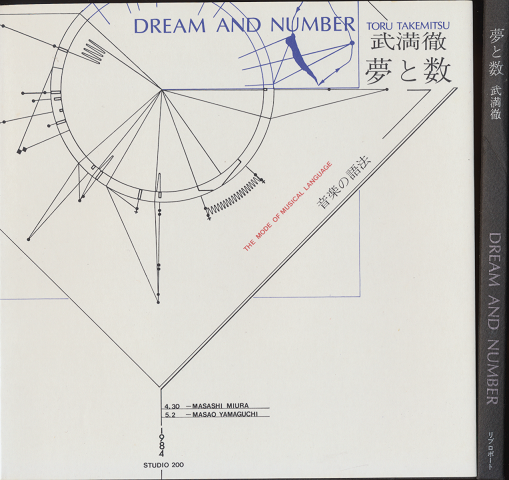 DREAM AND NUMBER
TORU TAKEMITSU
武満徹
夢と数
THE MODE OF MUSICAL LANGUAGE
音楽の語法
4.30 – MASASHI MIURA
5.2 – MASAO YAMAGUCHI
1984
STUDIO 200
夢と数 武満徹
DREAM AND NUMBER
リブロポート